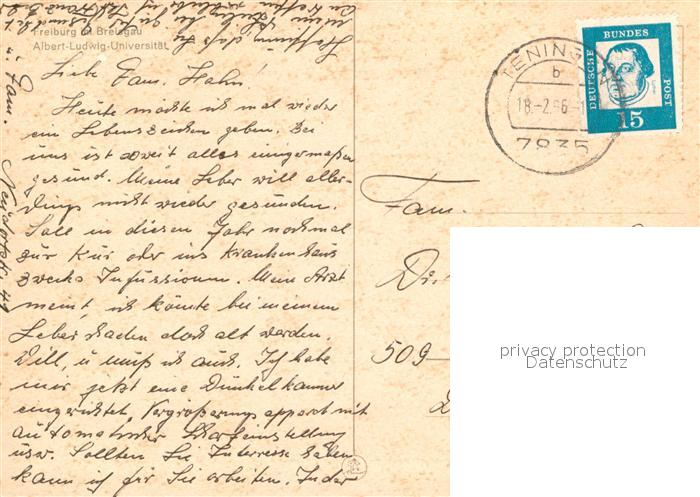 Freiburg im Breisgau
Albert-Ludwig-Universität
Liebe Fam. Hahn!
Heute möchte ich mal wieder
ein Lebenszeichen geben. Bei
uns ist soweit alles einigermaßen
gesund. Meine Leber will aller-
dings nicht wieder gesunden.
Soll in diesen Jahr nochmal
zur Kur oder ins Krankenhaus
zwecks Infussionen. Mein Arzt
meint, ich könnte bei meinem
Leber schaden doch alt werden.
Will, u muß ich auch. Ich habe
mir jetzt eine Dunkelkammer
eingerichtet, Vergrößerungsapparat mit
automatischer Scharfeinstellung
usw. Sollten Sie Interesse haben
kann ich für Sie arbeiten. In der
Hoffnung dass
u. Fam.
TENINGEN
b
18.-2.66
7835
DEUTSCHE BUNDESPOST
15
Fam.
509
privacy protection
Datenschutz